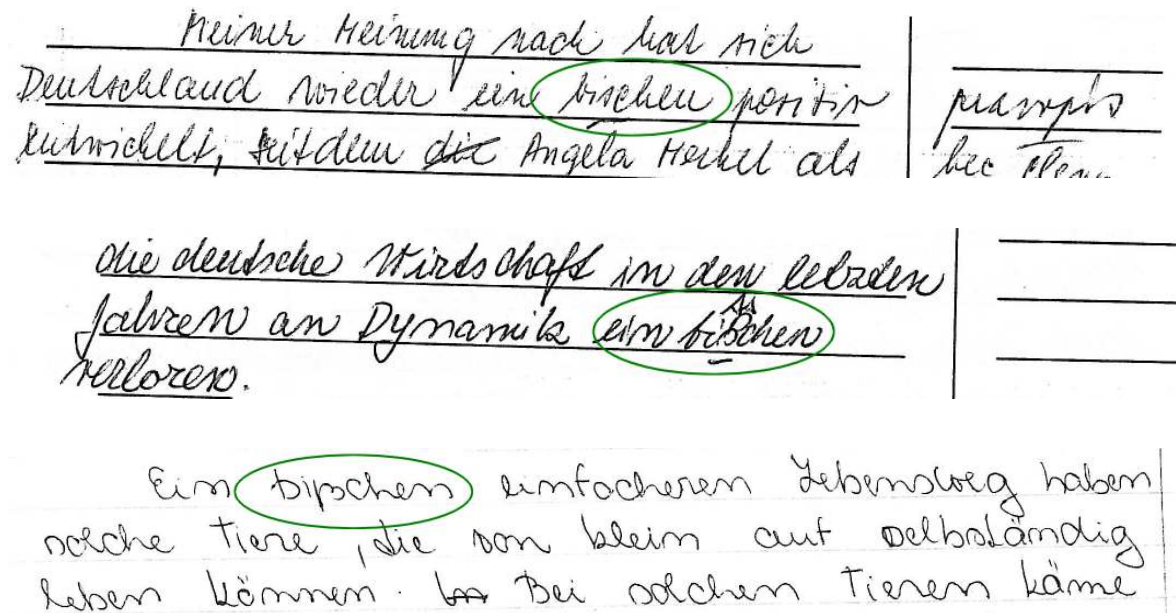 Meiner Meinung nach hat sich
Deutschland wieder ein bischen positiv
entwickelt, seitdem die Angela Merkel als
die deutsche Wirtschaft in den letzten
Jahren an Dynamik ein bißchen
verloren.
Ein bißschen einfacheren Lebensweg haben
solche Tiere, die von klein auf selbständig
leben können. Bei solchen Tieren käme